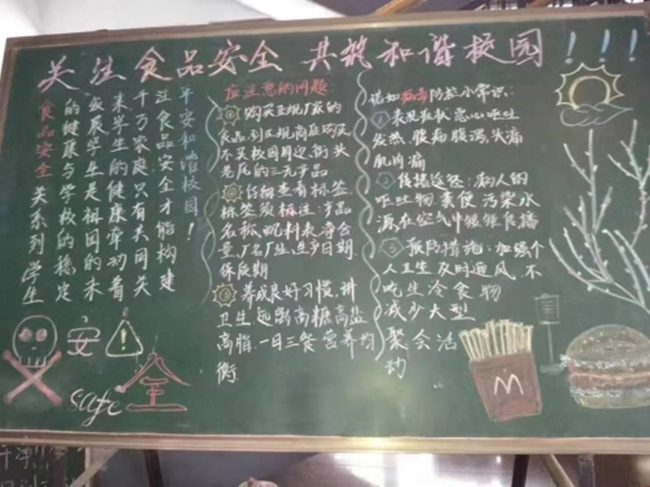 关注食品安全 共筑和谐校园!!!
食品安全关系到学生
的健康与学校的稳定
发展学生是祖国的未
来学生的健康牵动着
千万家庭只有共同关
注食品安全才能构建
平安和谐校园!
应注意的问题
① 购买正规厂家的
食品,到正规商店购买
不买校园周边,街头
巷尾的三无产品
② 仔细查看标签
标签须标注:产品
名称,配料表,净含
量,厂名厂址,生产日期
保质期
③ 养成良好习惯,讲
卫生 远离高糖高盐
高脂.一日三餐营养均
衡
诺如病毒防控小常识:
① 表现症状恶心呕吐
发热,腹痛腹泻,头痛
肌肉痛
② 传播途径:病人的
呕吐物 粪便 污染水
源,在空气中 传播
③ 预防措施:加强个
人卫生 及时通风.不
吃生冷食物
减少大型
聚会活
动
安
!
safe 全
M